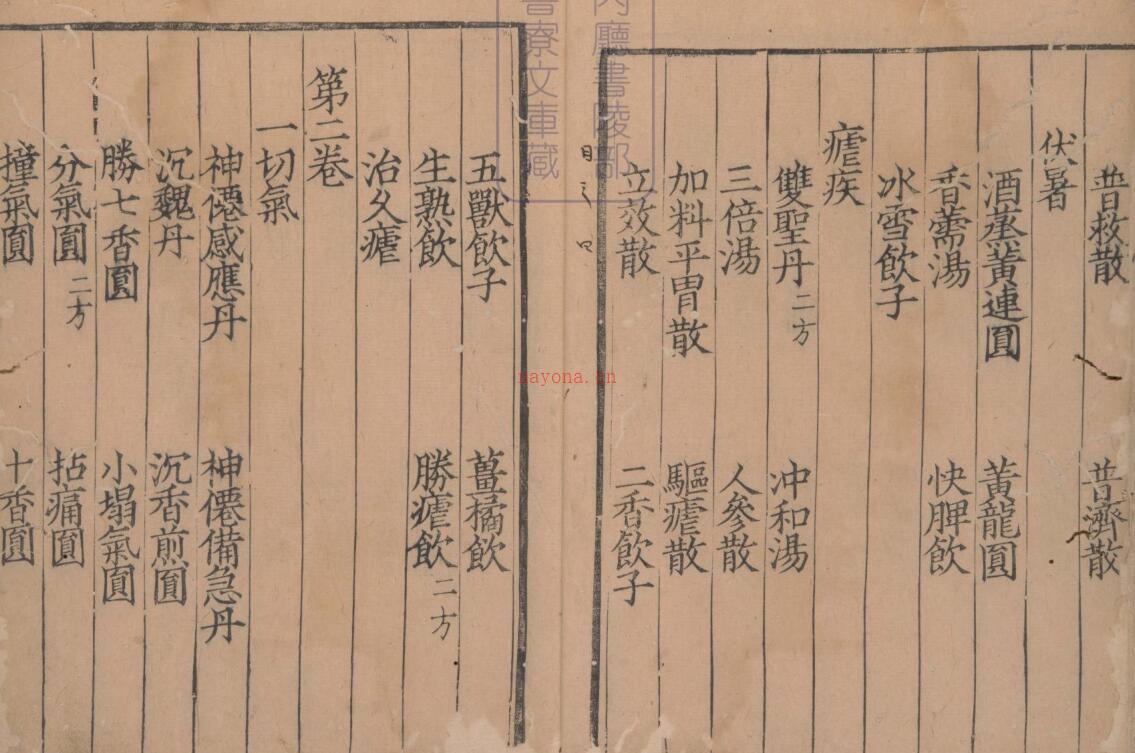 普救散 普濟散
伏暑
酒蒸黃連圓 黃龍圓
香薷湯 快脾飲
冰雪飲子
瘧疾
雙聖丹二方 冲和湯
三倍湯 人參散
加料平胃散 驅瘧散
立效散 二香飲子
五獸飲子 薑橘飲
生熟飲 勝瘧飲二方
治久瘧
第二卷
一切氣
神僊感應丹 神僊備急丹
沉魏丹 沉香煎圓
勝七香圓 小塌氣圓
分氣圓二方 拈痛圓
撞氣圓 十香圓
內廳書陵部
書寮文庫藏
nayona.cn